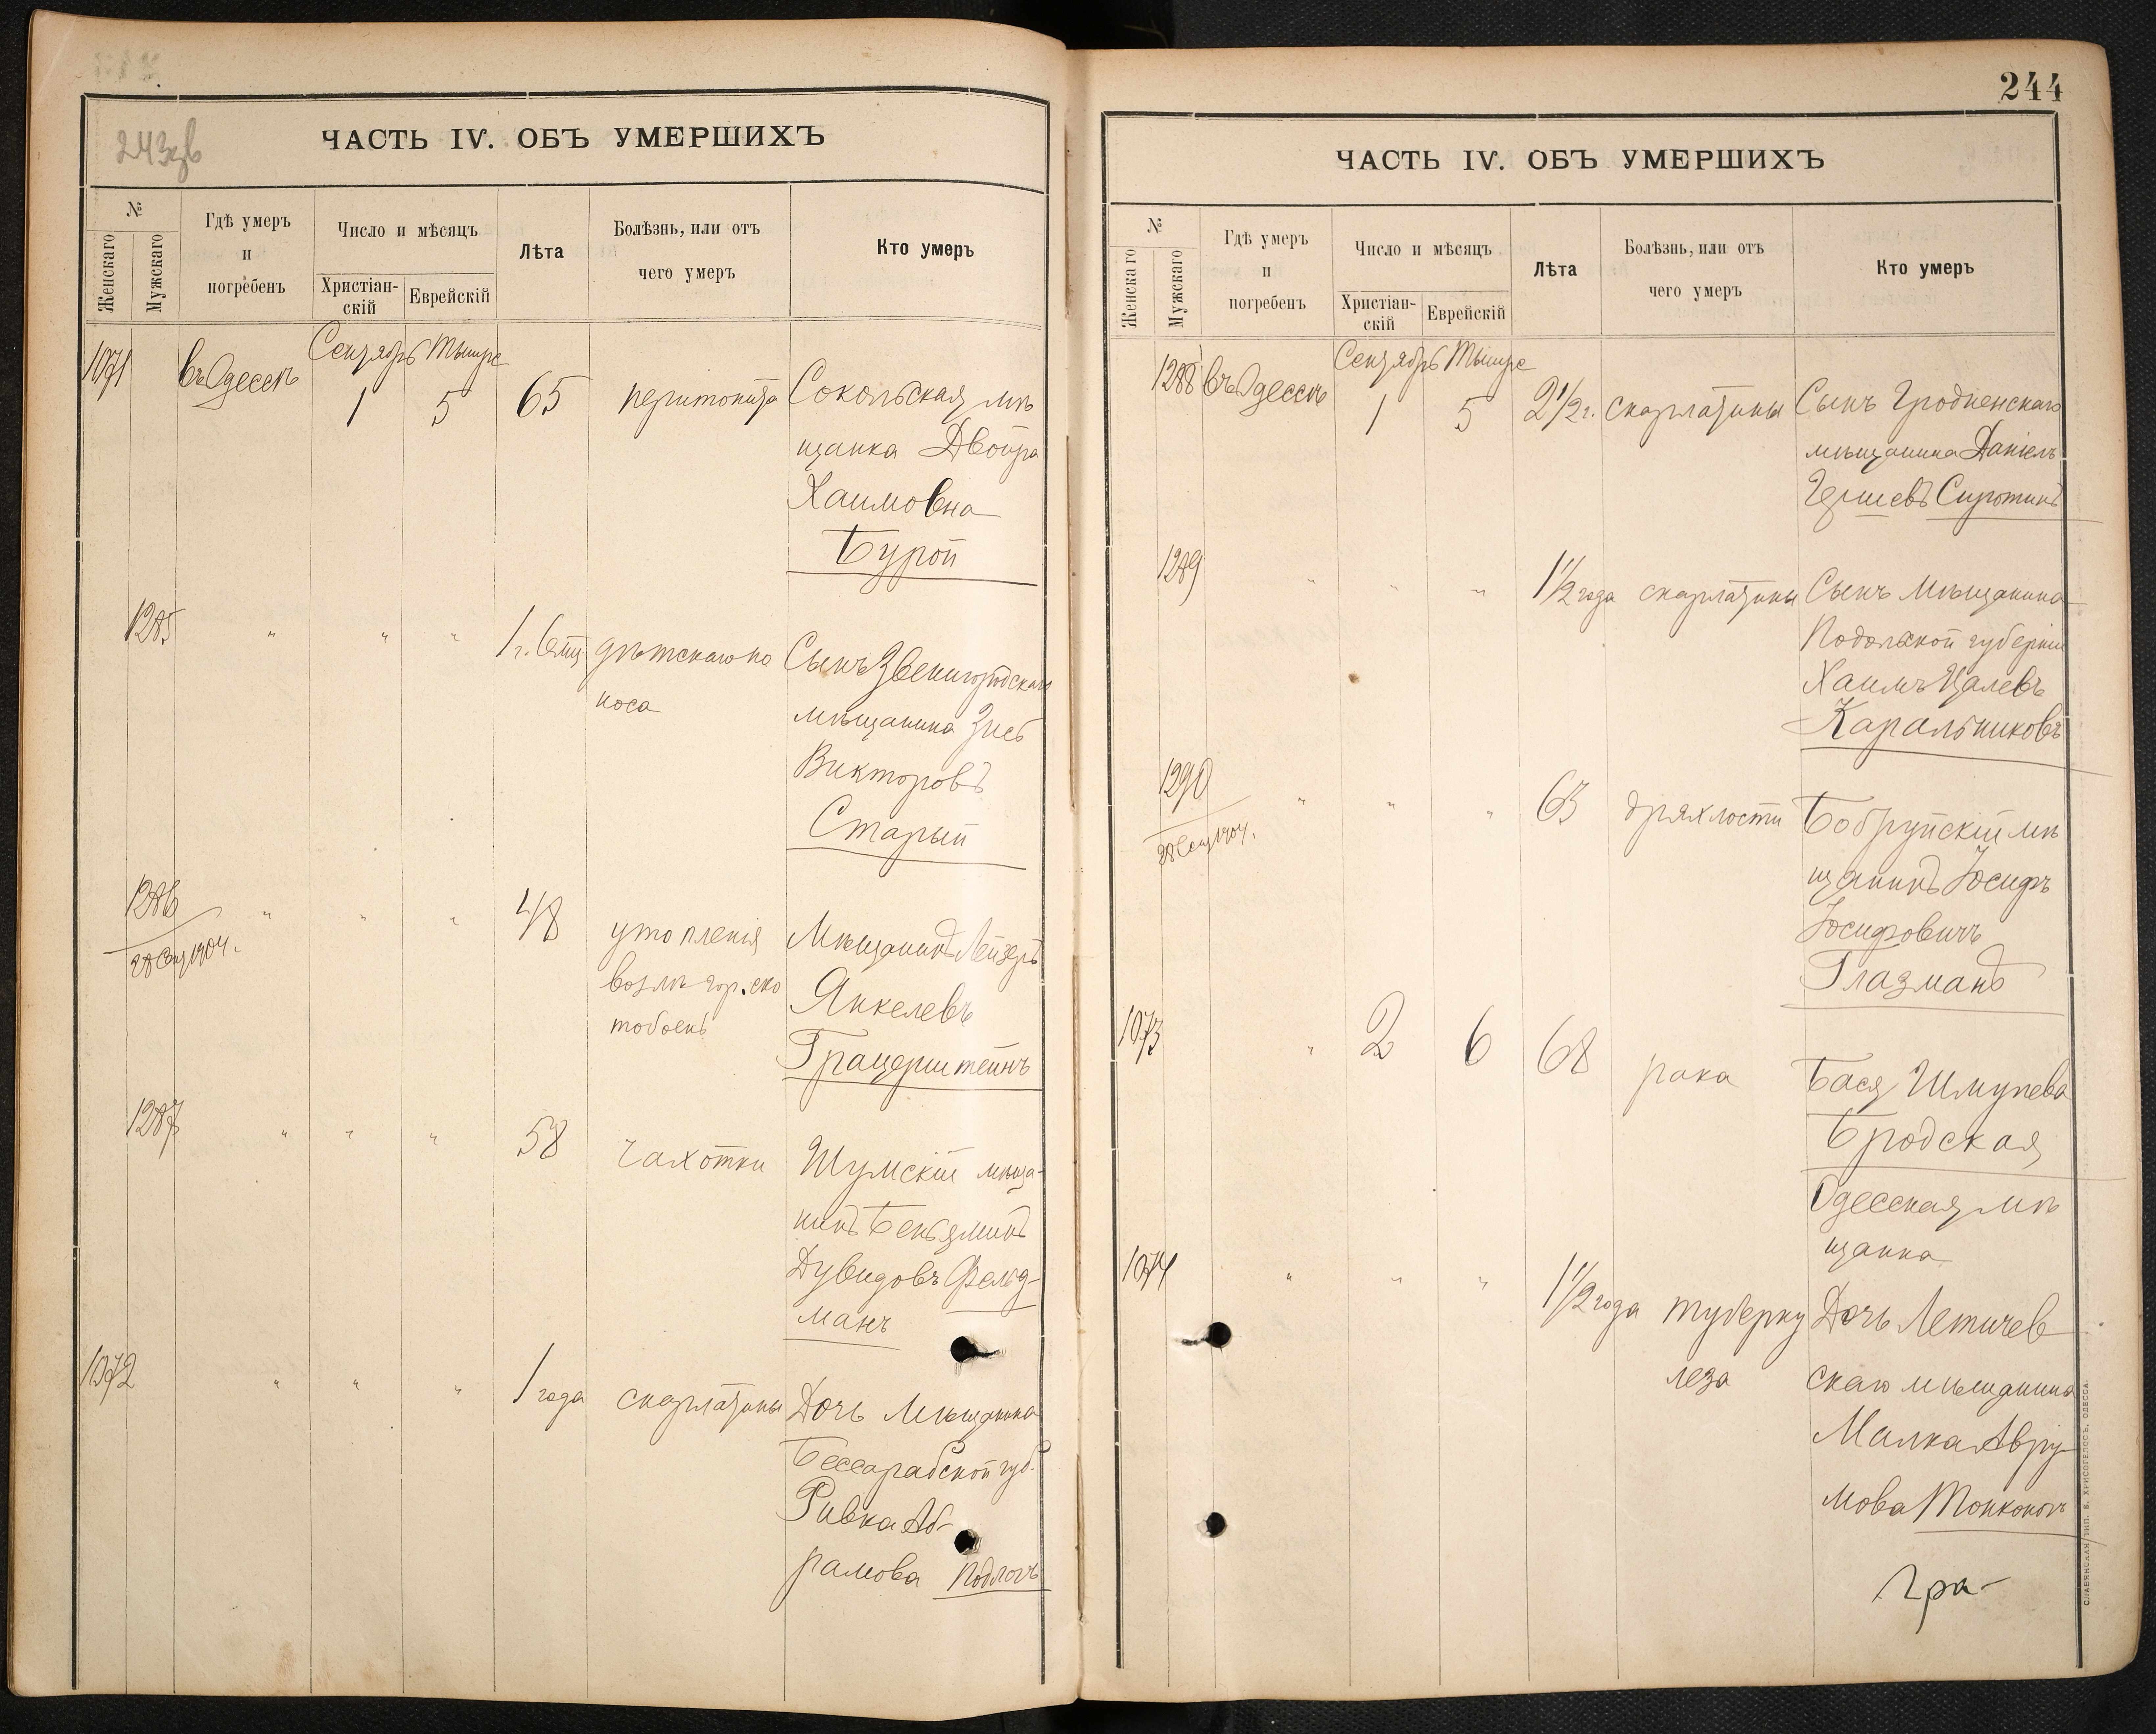 243об
ЧАСТЬ IV. ОБЪ УМЕРШИХЪ
№
Женскаго
Мужскаго
Гдѣ умеръ
и
погребенъ
Число и мѣсяцъ
Христіан-
скій
Еврейскій
Лѣта
Болѣзнь, или отъ
чего умеръ
Кто умеръ
Сентябрь Тышре
1071 въ Одессѣ 1 5 65 перитонита Сокольская мѣ
щанка Двойра
Хаимовна
Бурой
1285 " " " 1 г. 6 мц дѣтскаго по Сынъ Звенигородскаго
носа
мѣщанина Зисъ
Викторовъ
Старый
1286 " " " 48 утопленія Мѣщанинъ Лейзеръ
28 1904.
возлѣ гор. ско Янкелевъ
тобоенъ
1287 " " " 58 чахотки Шумскій мѣща-
нинъ Беньяминъ
Дувидовъ Фельд-
манъ
1072 " " " 1 года скарлатины Дочь мѣщанина
Бессарабской губ.
Ривка Аб-
рамова
244
ЧАСТЬ IV. ОБЪ УМЕРШИХЪ
№
Женскаго
Мужскаго
Гдѣ умеръ
и
погребенъ
Число и мѣсяцъ
Христіан-
скій
Еврейскій
Лѣта
Болѣзнь, или отъ
чего умеръ
Кто умеръ
Сентябрь Тышре
1288 въ Одессѣ 1 5 2½ г. скарлатины Сынъ Гродненскаго
мѣщанина Даніелъ
Гершевъ Сиротинъ
1289 " " " 1½ года скарлатины Сынъ мѣщанина
Подольской губерніи
Хаимъ Цалевъ
Каральниковъ
1290 " " " 63 дряхлости Бобруйскій мѣ
28 1904.
щанинъ Іосифъ
Іосифовичъ
Глазманъ
1073 " 2 6 68 рака Бася Шмулева
Бродская
Одесская мѣ
щанка
1074 " " " 1½ года туберку Дочь Летичев
леза
скаго мѣщанина
Малка Авру-
мова Тонконогъ
Гра-
СЛАВЯНСКАЯ ТИП. Е. ХРИСОГЕЛОСЪ, ОДЕССА.